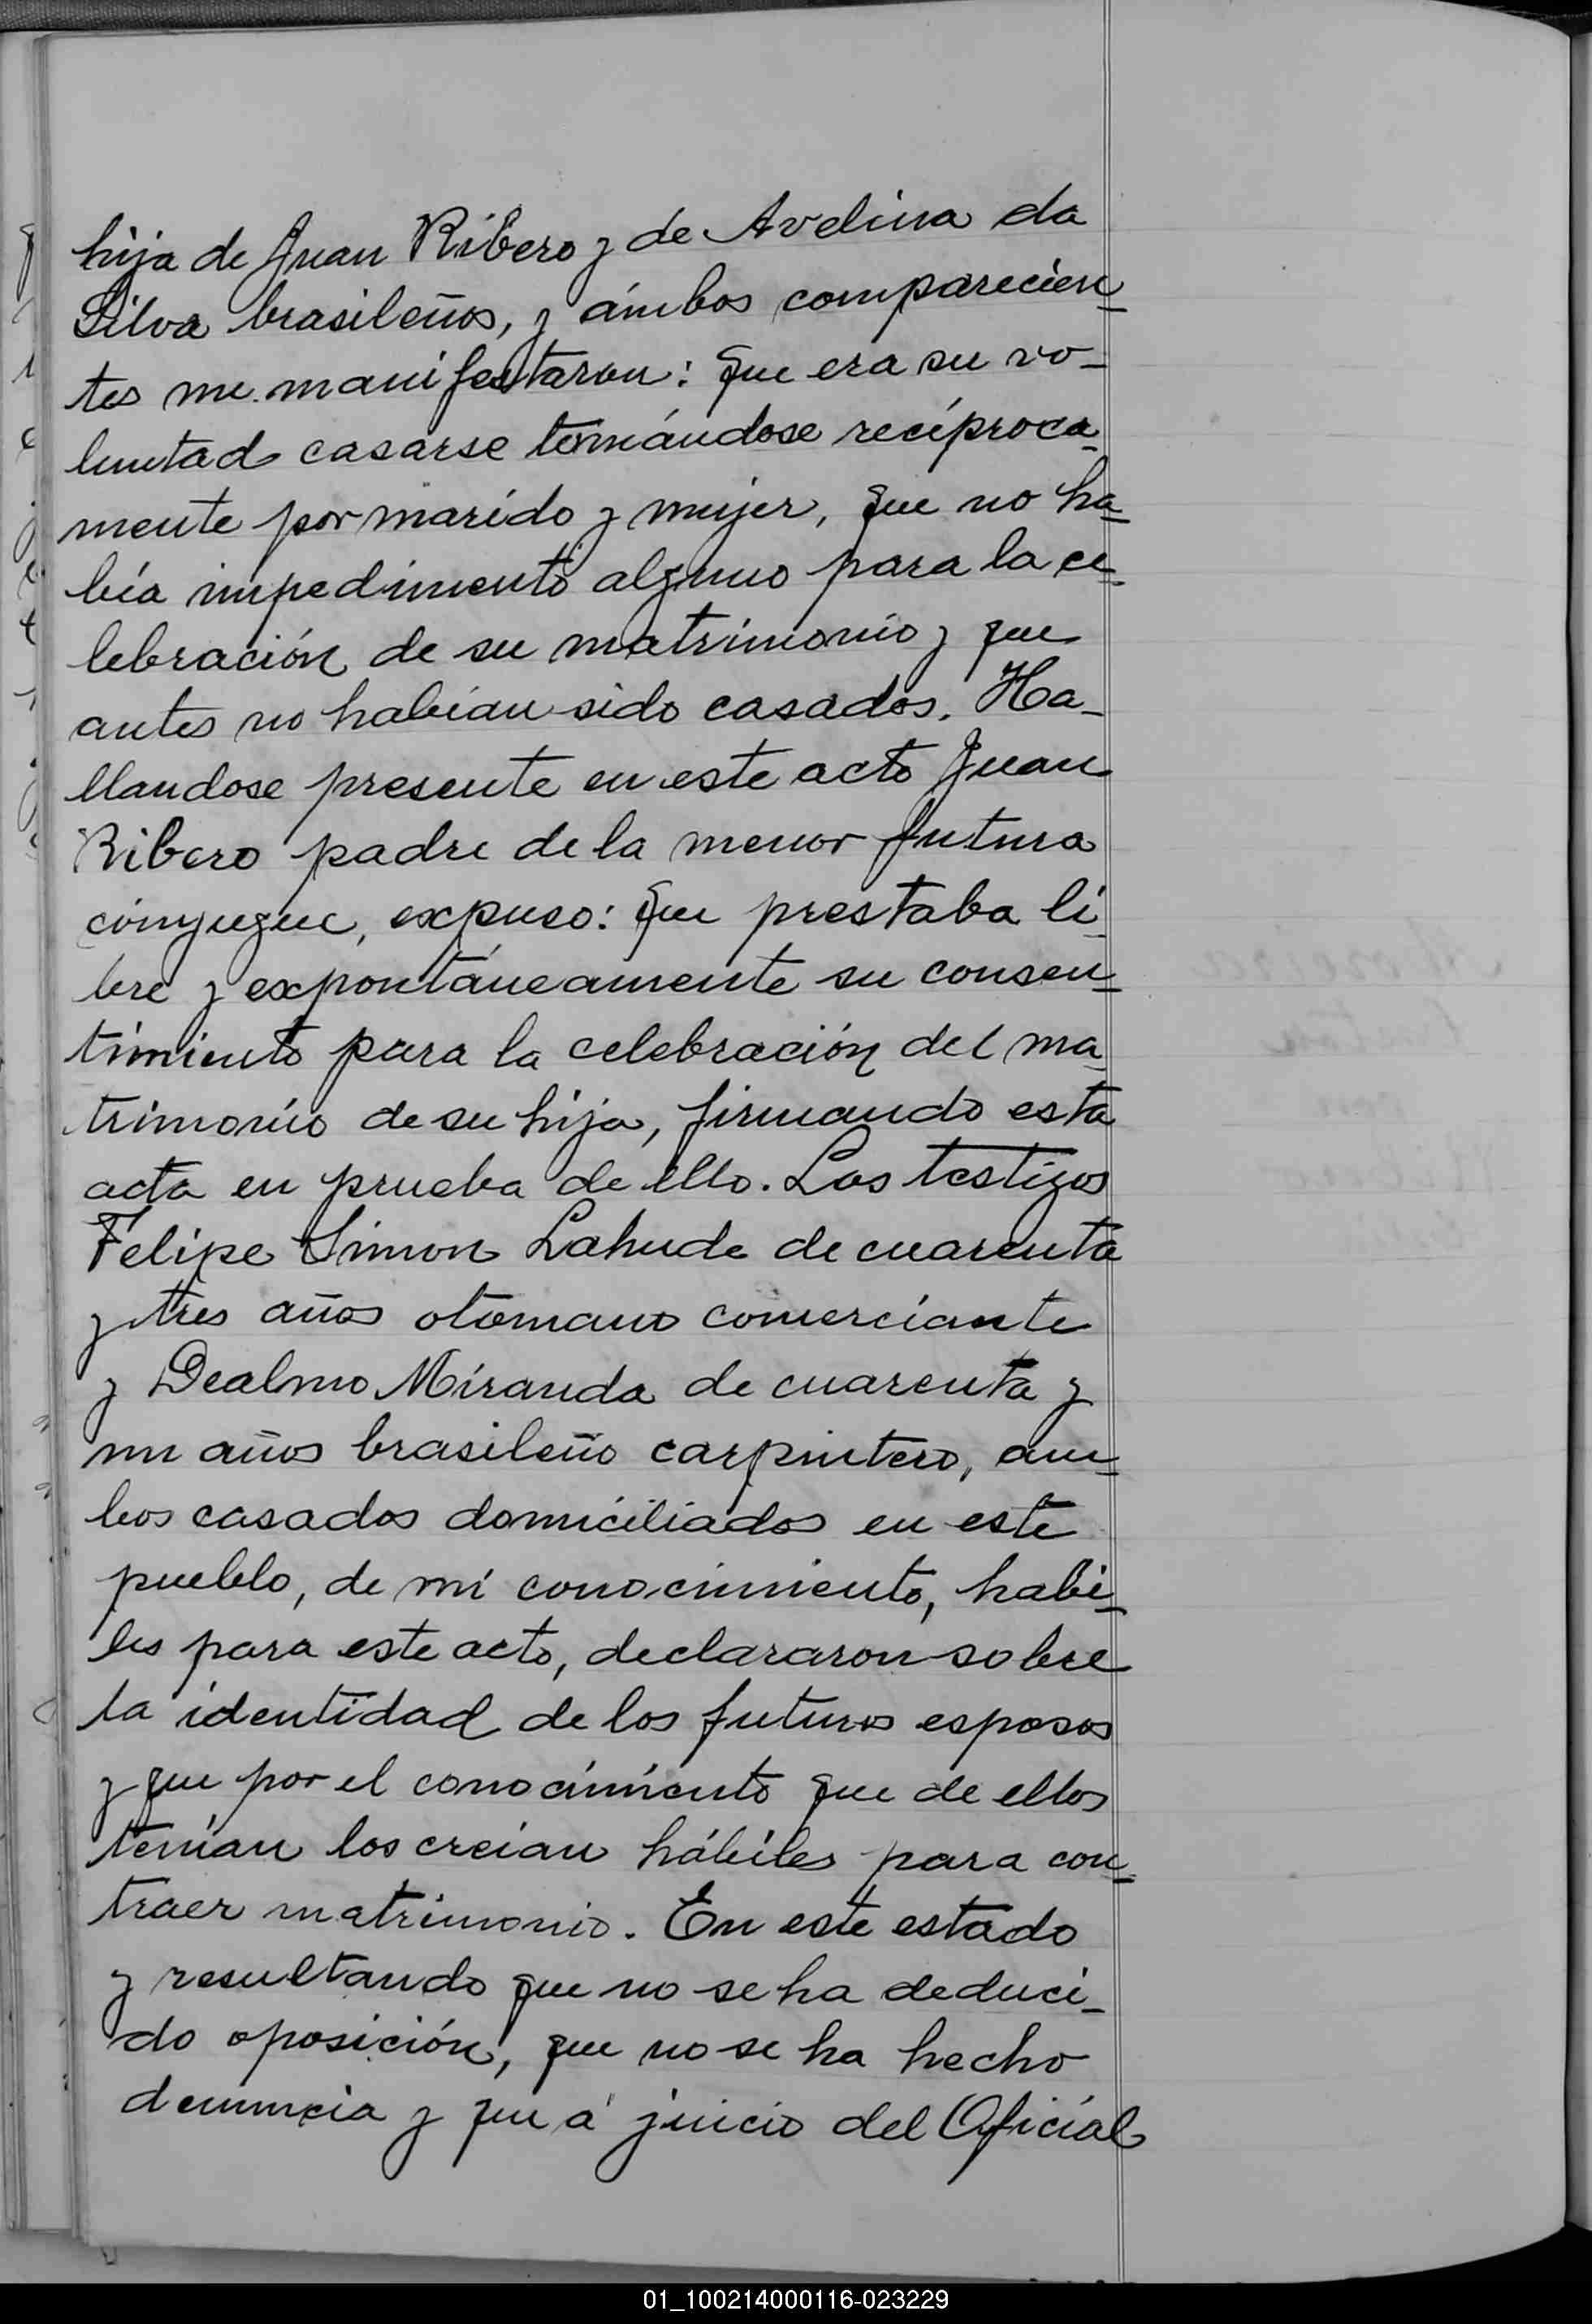 hija de Juan Ribero y de Avelina da
Silva brasileños, y ámbos comparecien-
tes me manifestaron: que era su vo-
luntad casarse tomándose recíproca-
mente por marido y mujer, que no ha-
bía impedimento alguno para la ce-
lebración de su matrimonio y que
antes no habían sido casados. Ha-
llandose presente en este acto Juan
Ribero padre de la menor futura
cónyugue, expuso: que prestaba li-
bre y expontáneamente su consen-
timiento para la celebración del ma-
trimonio de su hija, firmando esta
acta en prueba de ello. Los testigos
Felipe Simon Lahude de cuarenta
y tres años otomano comerciante
y Dealmo Miranda de cuarenta y
un años brasileño carpintero, am-
bos casados domiciliados en este
pueblo, de mi conocimiento, habi-
les para este acto, declararon sobre
la identidad de los futuros esposos
y que por el conocimiento que de ellos
tenían los creían hábiles para con-
traer matrimonio. En este estado
y resultando que no se ha deduci-
do oposición, que no se ha hecho
denuncia y que á juicio del Oficial
01_100214000116-023229